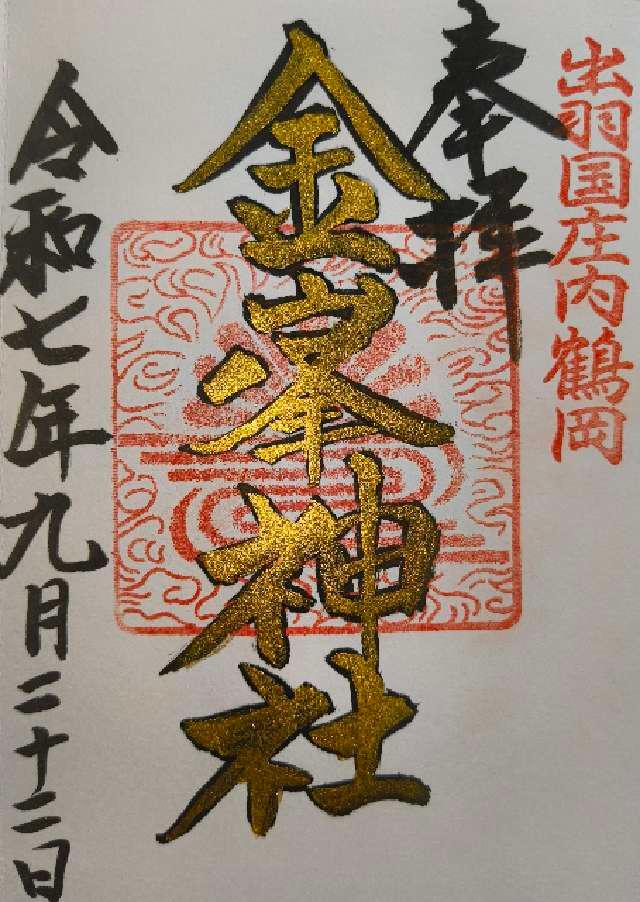 出羽国庄内鶴岡
奉拝
金峯神社
令和七年九月二十二日